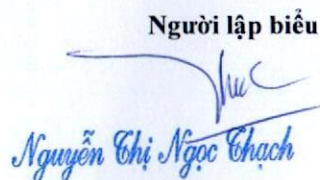 Người lập biểu
Nguyễn Thị Ngọc Thạch